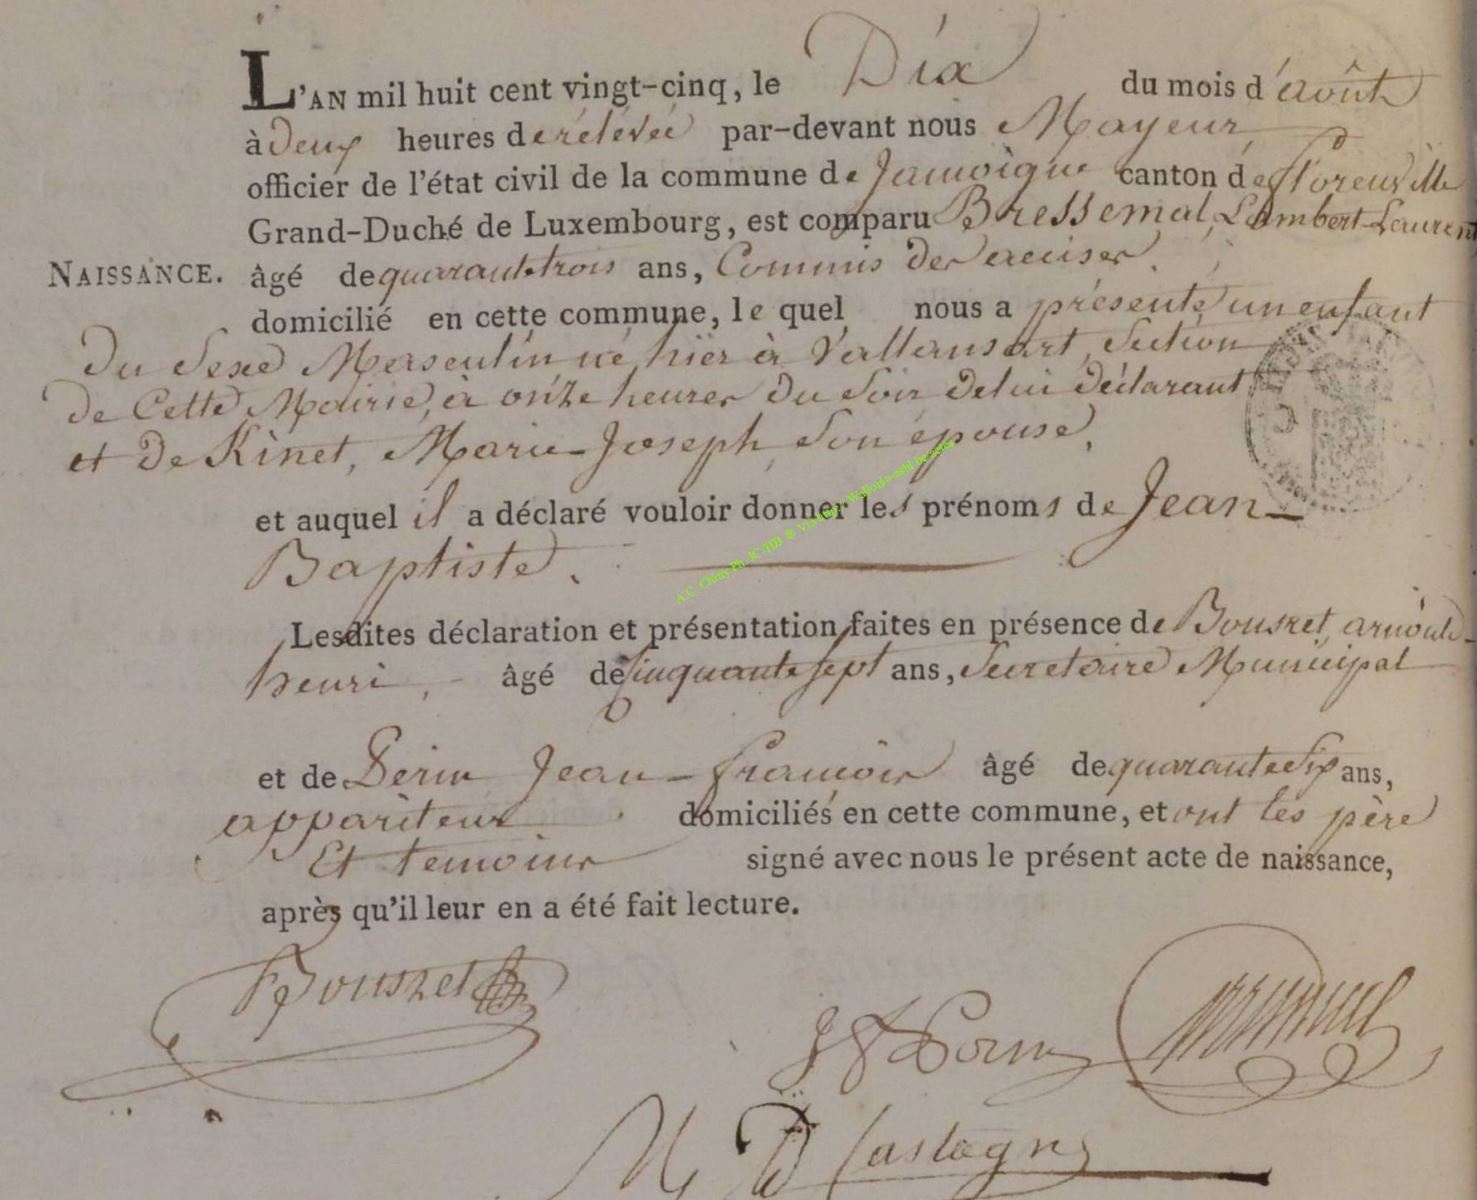 L'AN mil huit cent vingt-cinq, le Dix du mois d'août
à deux heures de rélévée par-devant nous Mayeur
officier de l'état civil de la commune de Jamoigne canton de florenville
Grand-Duché de Luxembourg, est comparu Bressemal, Lambert-Laurent
NAISSANCE. âgé de quarante trois ans, Commis des accises
domicilié en cette commune, le quel nous a présenté un enfant
du Sexe Masculin né hier à Vallansart, Section
de Cette Mairie, à onze heures du Soir de lui déclarant
et de Kinet, Marie-Joseph, Son épouse,
et auquel il a déclaré vouloir donner les prénoms de Jean-
Baptiste.
Lesdites déclaration et présentation faites en présence de Bousret, arnould-
henri, âgé de cinquante sept ans, Secretaire Municipal
et de Perin Jean-françois âgé de quarante Six ans,
appariteur domiciliés en cette commune, et ont les père
Et temoins signé avec nous le présent acte de naissance,
après qu'il leur en a été fait lecture.
Bousret